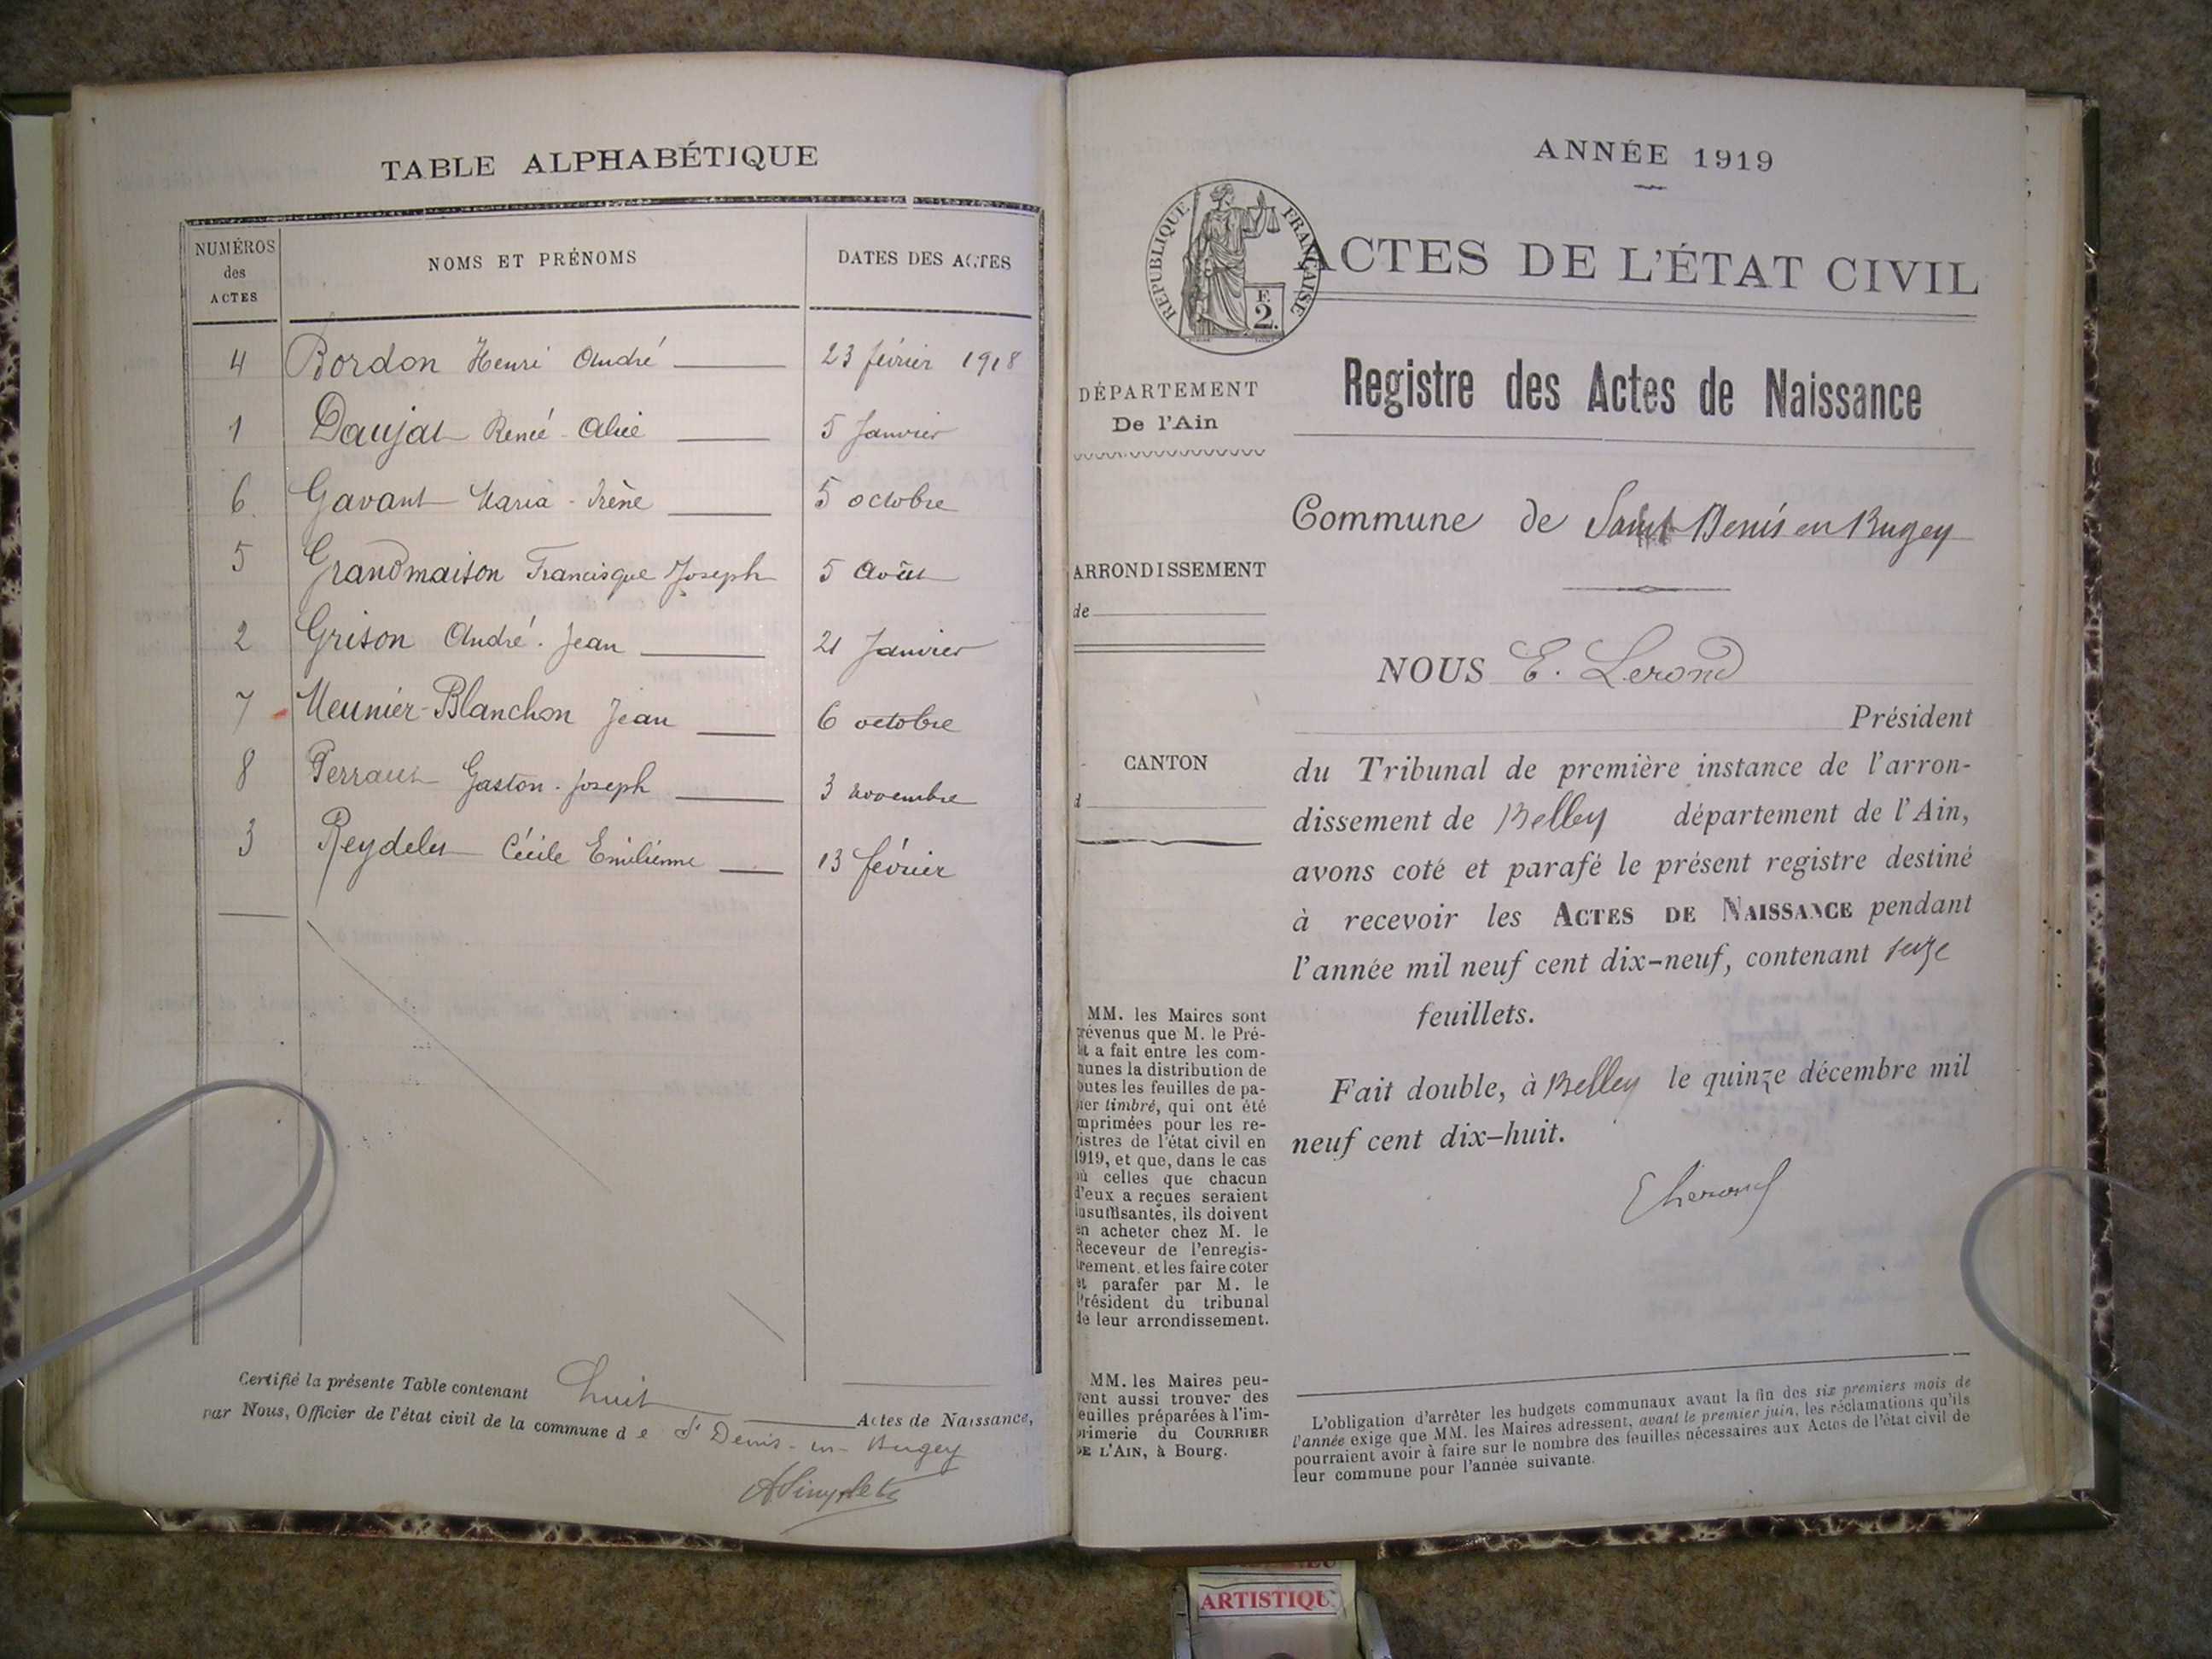 TABLE ALPHABÉTIQUE
NUMÉROS des ACTES
NOMS ET PRÉNOMS
DATES DES ACTES
4 Bordon Henri André 23 février 1918
1 Daujat Renée-Alice 5 Janvier
6 Gavant Maria-Irène 5 octobre
5 Grandmaison Francisque Joseph 5 Août
2 Grison André-Jean 21 Janvier
7 Meunier-Blanchon Jean 6 octobre
8 Perraut Gaston-Joseph 3 novembre
3 Reydelet Cécile Emilienne 13 février
Certifié la présente Table contenant huit Actes de Naissance,
par Nous, Officier de l'état civil de la commune de St Denis-en-Bugey
ANNÉE 1919
RÉPUBLIQUE FRANÇAISE
F.
2.
ACTES DE L'ÉTAT CIVIL
DÉPARTEMENT
De l'Ain
Registre des Actes de Naissance
Commune de Saint Denis en Bugey
ARRONDISSEMENT
de
NOUS E. Lerond
Président
CANTON
d
du Tribunal de première instance de l'arron-
dissement de Belley département de l'Ain,
avons coté et parafé le présent registre destiné
à recevoir les ACTES DE NAISSANCE pendant
l'année mil neuf cent dix-neuf, contenant seize
feuillets.
Fait double, à Belley le quinze décembre mil
neuf cent dix-huit.
ELerond
MM. les Maires sont
prévenus que M. le Pré-
fet a fait entre les com-
munes la distribution de
toutes les feuilles de pa-
pier timbré, qui ont été
imprimées pour les re-
gistres de l'état civil en
1919, et que, dans le cas
où celles que chacun
d'eux a reçues seraient
insuffisantes, ils doivent
en acheter chez M. le
Receveur de l'enregis-
trement, et les faire coter
et parafer par M. le
Président du tribunal
de leur arrondissement.
MM. les Maires peu-
vent aussi trouver des
feuilles préparées à l'im-
primerie du COURRIER
DE L'AIN, à Bourg.
L'obligation d'arrêter les budgets communaux avant la fin des six premiers mois de
l'année exige que MM. les Maires adressent, avant le premier juin, les réclamations qu'ils
pourraient avoir à faire sur le nombre des feuilles nécessaires aux Actes de l'état civil de
leur commune pour l'année suivante.
ARTISTIQU